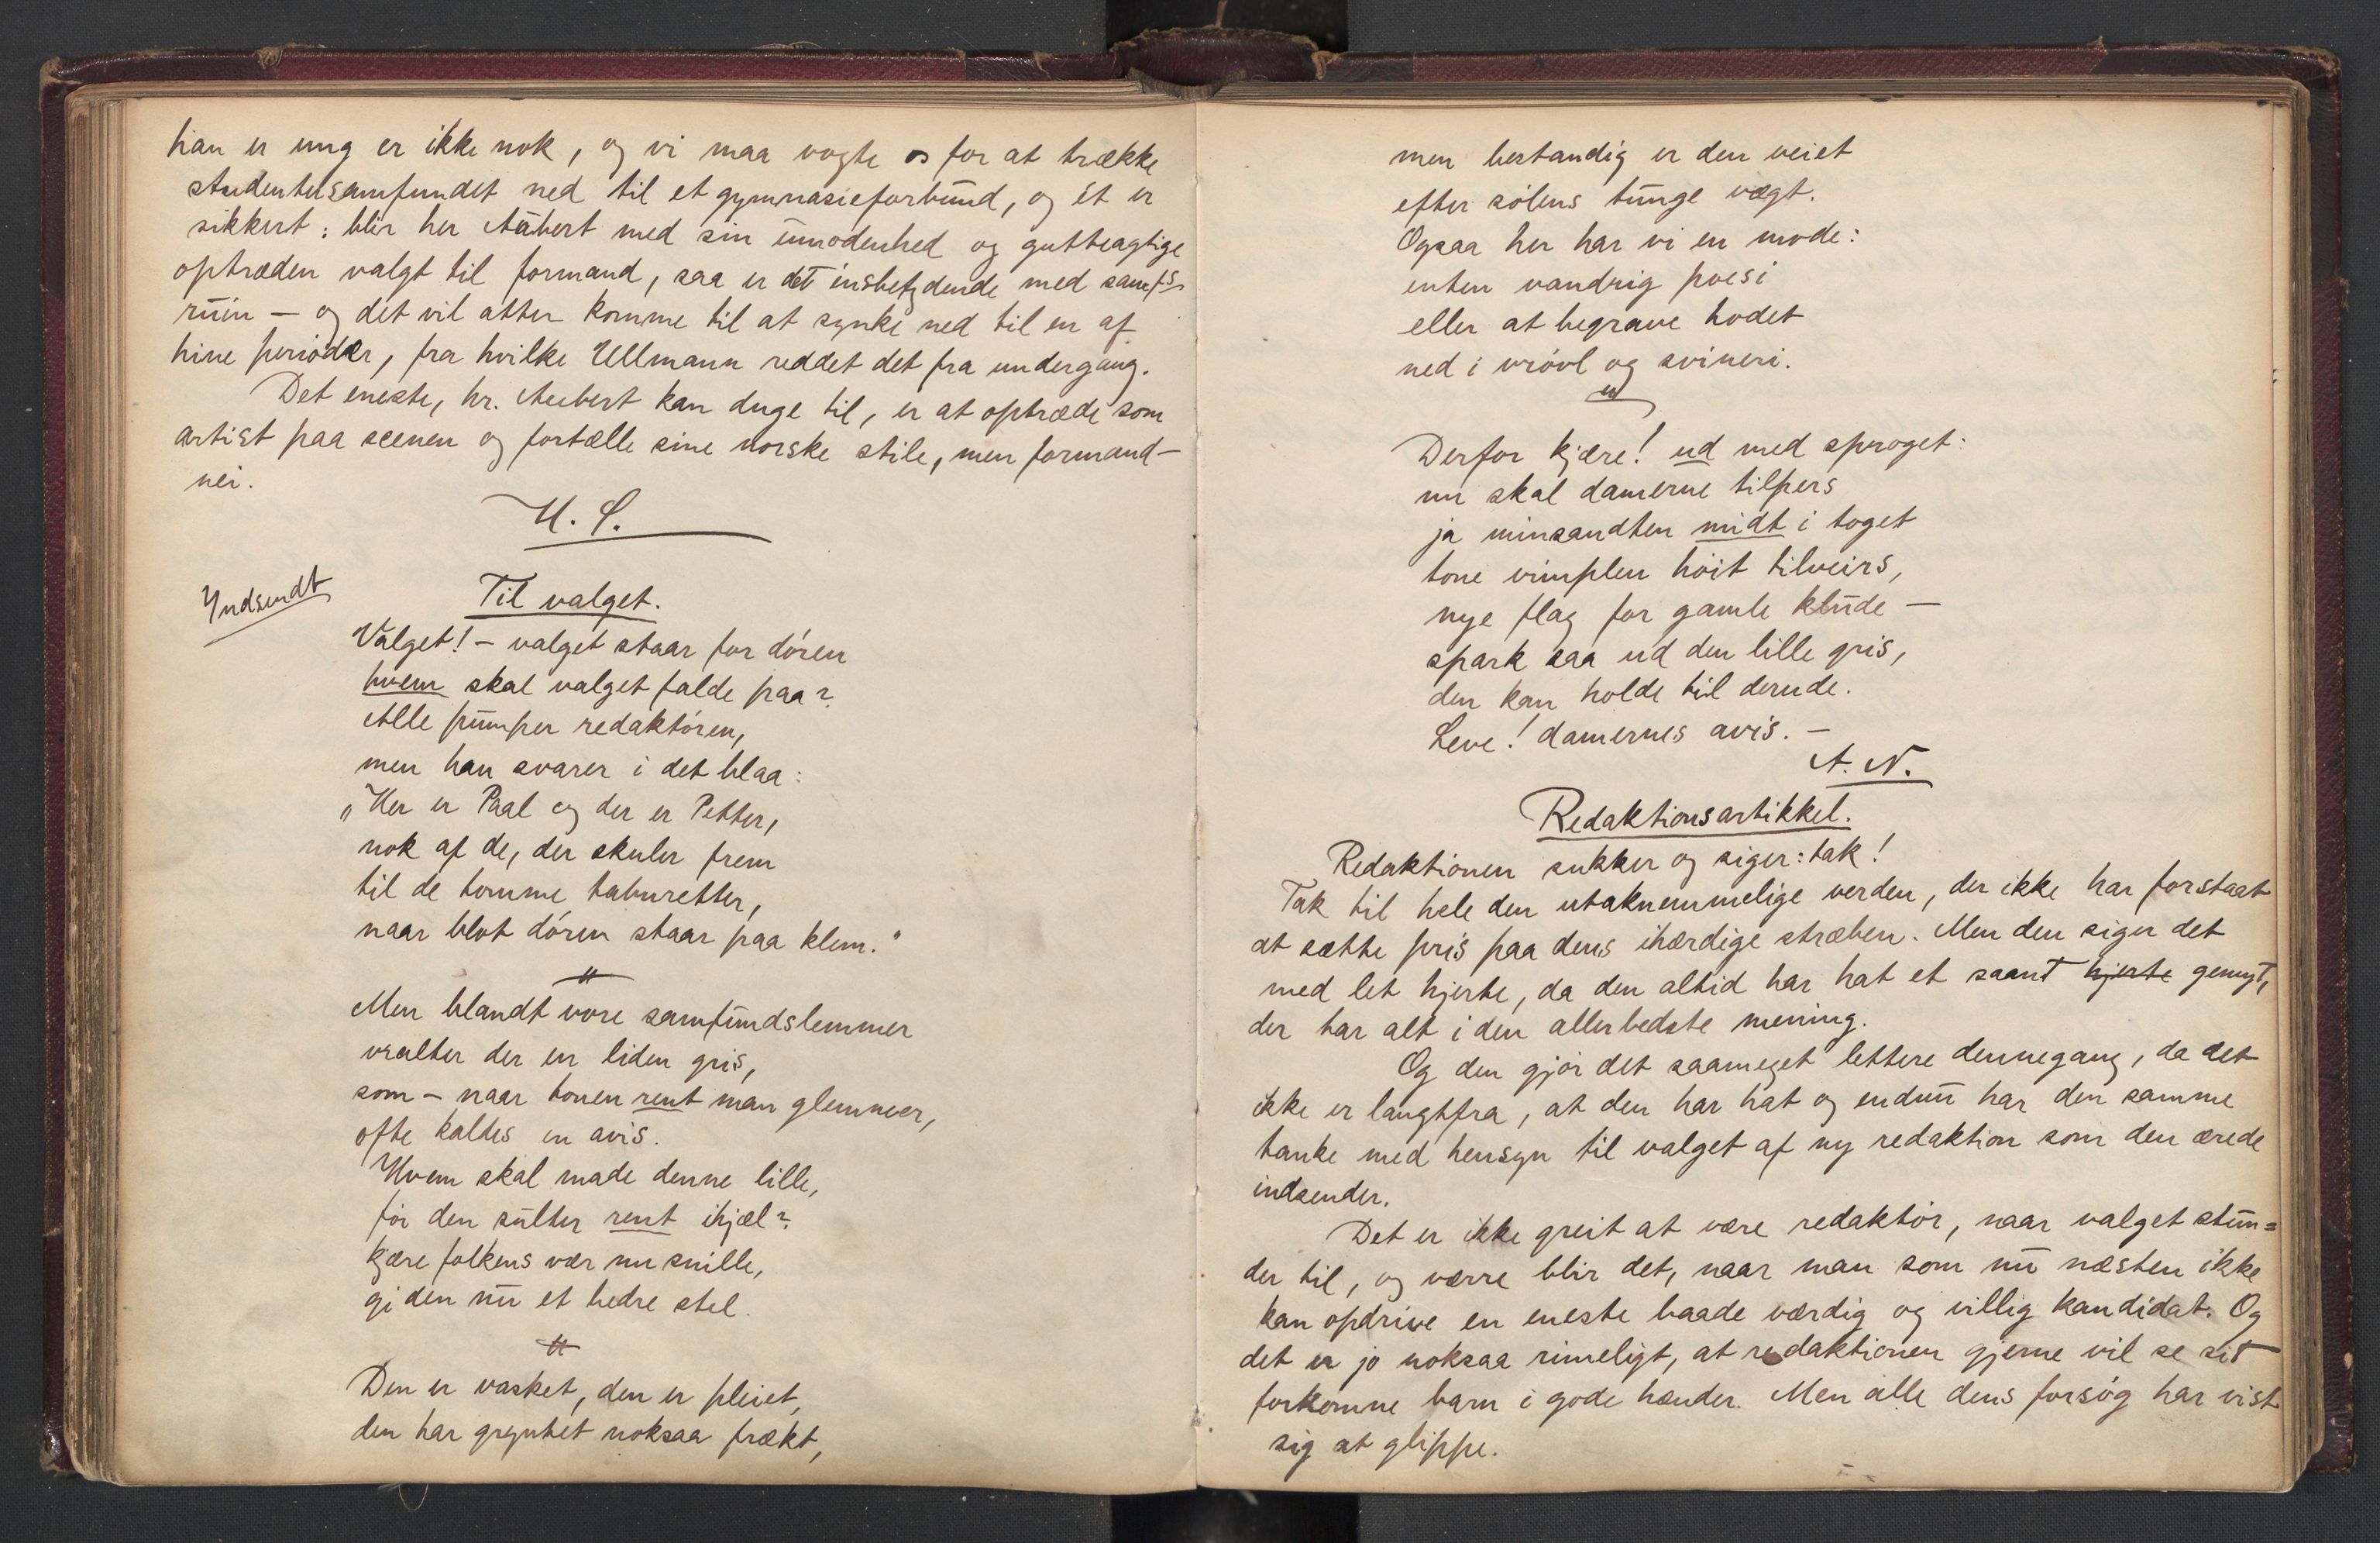 han er ung er ikke nok, og vi maa vogte os for at trække
studentersamfundet ned til et gymnasieforbund, og ét er
sikkert: blir her Aubert med sin umodenhed og gutteagtige
optræden valgt til formand, saa er det ensbetydende med samf's
ruin — og det vil atter komme til at synke ned til en af
hine perioder, fra hvilke Ullmann reddet det fra undergang.
Det eneste, hr. Aubert kan duge til, er at optræde som
artist paa scenen og fortælle sine norske stile, men formand —
nei.
U. S.
Indsendt
Til valget.
Valget! — valget staar for døren
hvem skal valget falde paa?
Alle pumper redaktøren,
men han svarer i det blaa:
„Her er Paal og der er Petter,
nok af de, der skuler frem
til de tomme taburetter,
naar blot døren staar paa klem."
Men blandt vore samfundslemmer
vralter der en liden gris,
som — naar tonen rent man glemmer,
ofte kaldes en avis.
Hvem skal made denne lille,
før den sulter rent ihjæl?
kjære folkens vær nu snille,
gi den nu et bedre stel.
Den er vasket, den er pleiet,
den har gryntet noksaa frækt,
men bestandig er den veiet
efter sølens tunge vægt.
Ogsaa her har vi en mode:
enten vandrig poesi
eller at begrave hodet
ned i vrøvl og svineri.
Derfor kjære! ud med sproget:
nu skal damerne tilpers
ja minsandten midt i toget
tone vimplen høit tilveirs,
nye flag for gamle klude —
spark saa ud den lille gris,
den kan holde til derude.
Leve! damernes avis. —
A. N.
Redaktionsartikkel.
Redaktionen sukker og siger: tak!
Tak til hele den utaknemmelige verden, der ikke har forstaat
at sætte pris paa dens ihærdige stræben. Men den siger det
med let hjerte, da den altid har hat et saant hjerte gemyt,
der har alt i den allerbedste mening.
Og den gjør det saameget lettere dennegang, da det
ikke er langtfra, at den har hat og endnu har den samme
tanke med hensyn til valget af ny redaktion som den ærede
indsender.
Det er ikke greit at være redaktør, naar valget stun=
der til, og værre blir det, naar man som nu næsten ikke
kan opdrive en eneste baade værdig og villig kandidat. Og
det er jo noksaa rimeligt, at redaktionen gjerne vil se sit
forkomne barn i gode hænder. Men alle dens forsøg har vist
sig at glippe.